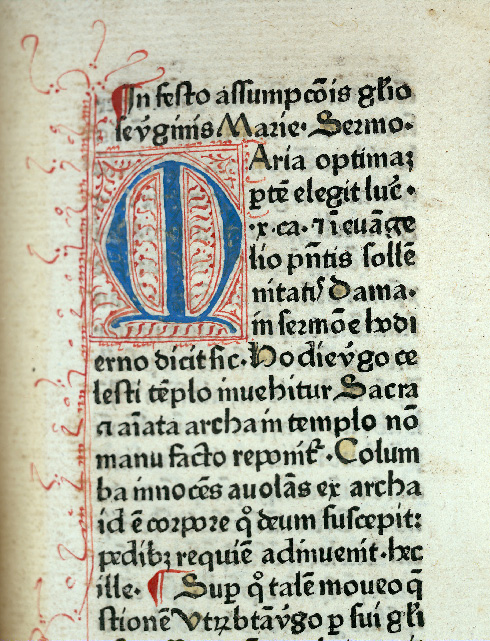 In festo assumpcõis gl'io
se v̓ginis Marie· Sermo·
MAria optimaꝫ
ꝑtē elegit luc̄·
·x·ca· ⁊ ī euāge
lio pn̄tis sollē
nitatis Dama·
in sermōe hodi
erno dicit sic· Hodie v̓go ce
lesti tēplo inuehitur Sacra
⁊ aīata archa in templo nō
manu facto reponit᷑· Colum
ba innocēs auolās ex archa
id ē corpore q̄ deum suscepit:
pedibꝫ requiē adinuenit· hec
ille· ¶ Suꝑ q̊ talē moueo q̄
stionē Vtꝝ btā v̓go ꝑ sui gl'i